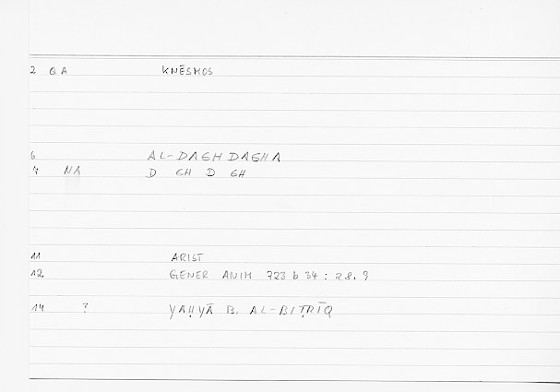 2 QA KNĒSMOS
6 AL-DAGHDAGHA
7 NA D GH D GH
11 ARIST
12 GENER ANIM 723 b 34 : 28.9
14 ? YAḤYĀ B. AL-BIṬRĪQ